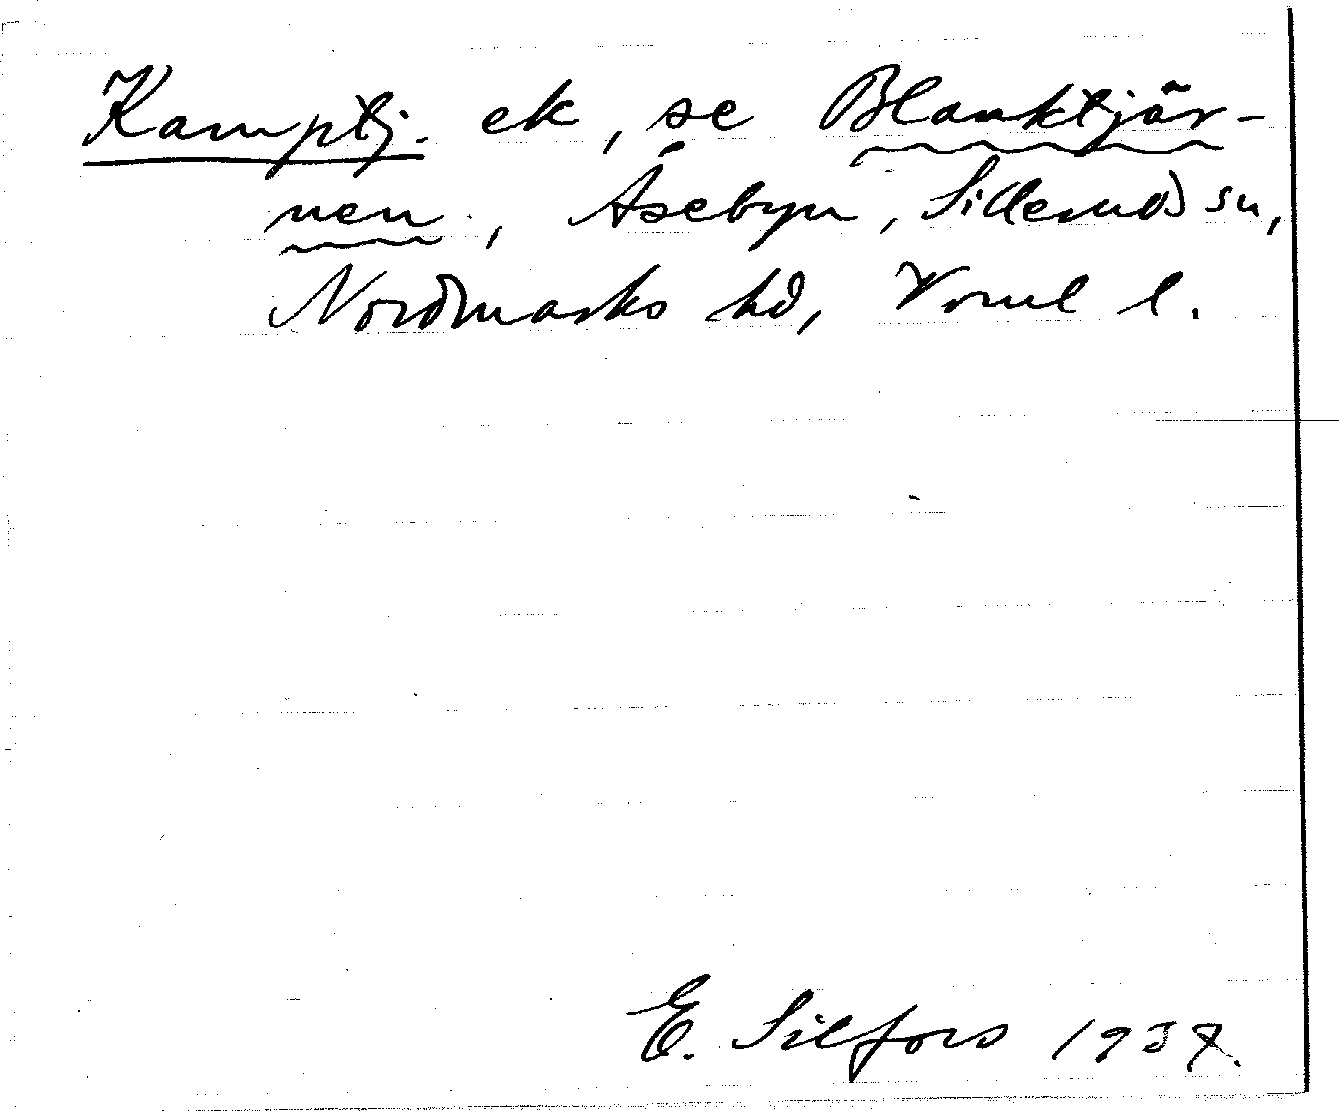 Kamptj. ek, se Blanktjär-
nen, Åsebyn, Sillerud sn,
Nordmarks hd, Vrml l.
E. Silfors 1937.